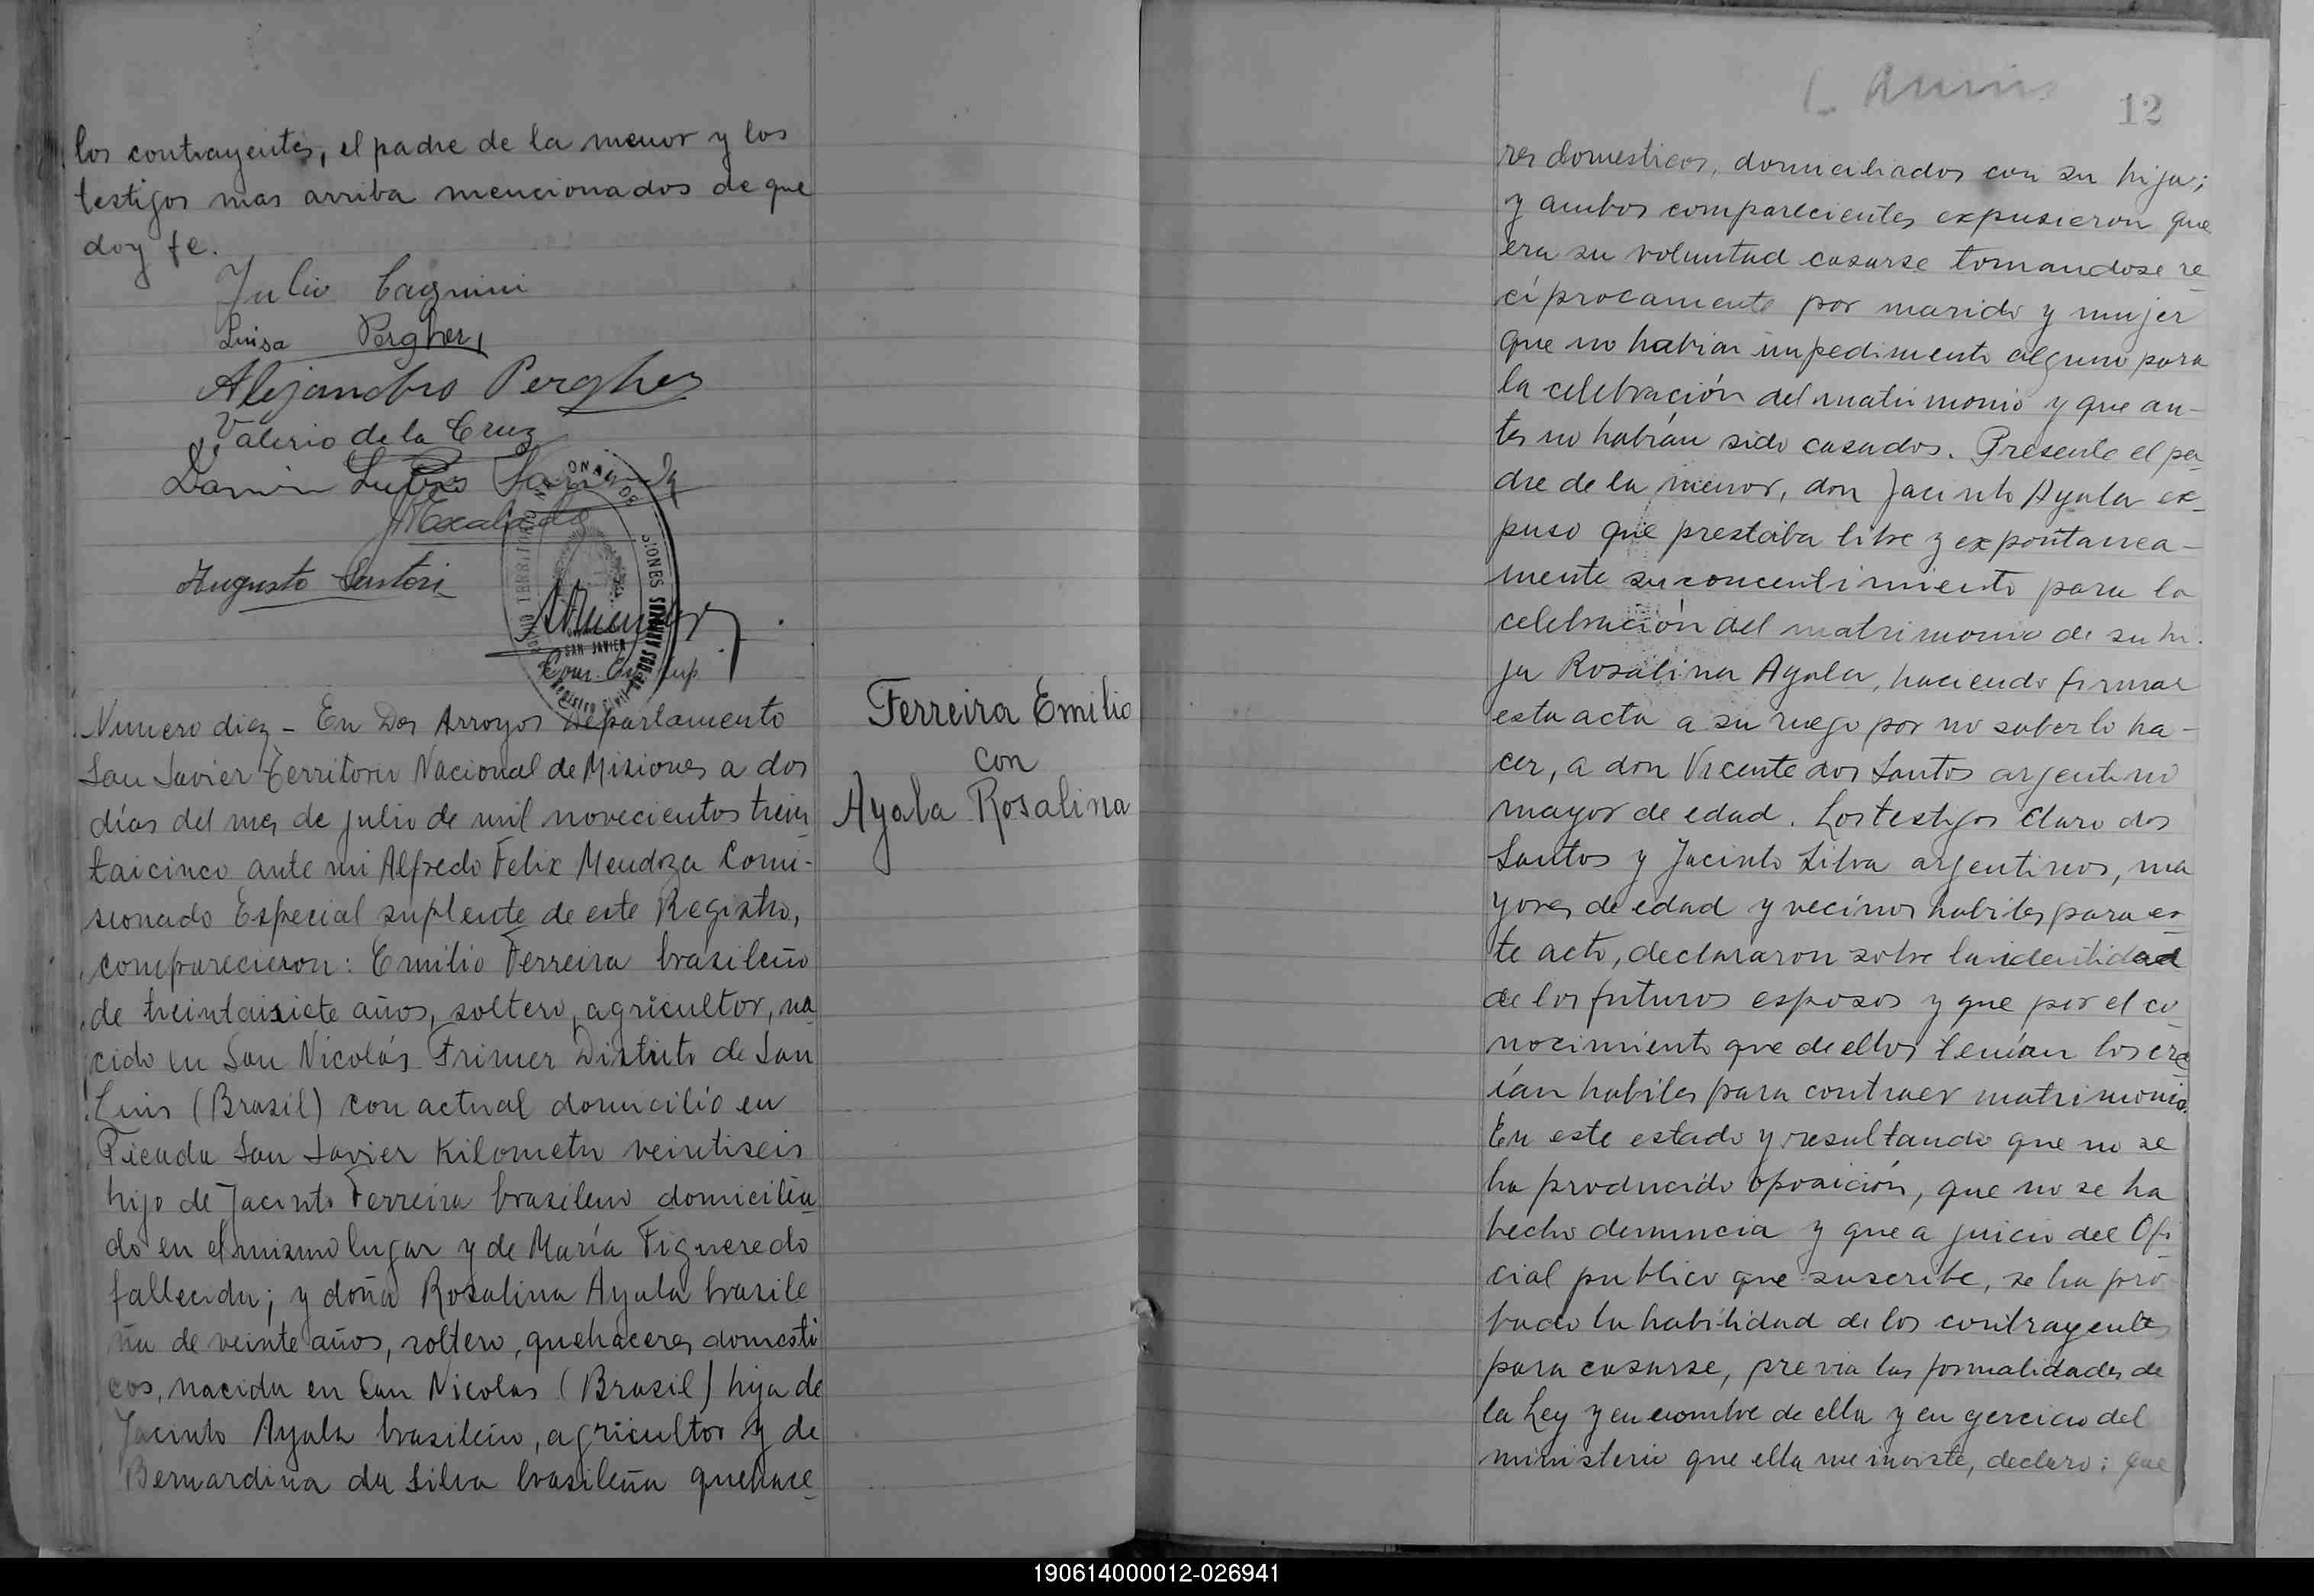 los contrayentes, el padre de la menor y los
testigos mas arriba mencionados de que
doy fe.
Julio Cagnini
Luisa Pergher
Alejandro Pergher
Valerio de la Cruz
Augusto Sartori
SAN JAVIER
Numero diez - En Dos Arroyos Departamento
San Javier Territorio Nacional de Misiones a dos
días del mes de julio de mil novecientos trein
taicinco ante mi Alfredo Felix Mendoza Comi-
sionado Especial suplente de este Registro,
comparecieron: Emilio Ferreira brasileño
de treintaisiete años, soltero, agricultor, na
cido en San Nicolás Primer Distrito de San
Luis (Brasil) con actual domicilio en
Picada San Javier Kilometro veintiseis
hijo de Jacinto Ferreira brasileno domicilia
do en el mismo lugar y de María Figueredo
fallecida; y doña Rosalina Ayala brasile
ña de veinte años, soltera, quehaceres domesti
cos, nacida en San Nicolas (Brasil) hija de
Jacinto Ayala brasileño, agricultor y de
Bernardina da Silva brasileña quehace
Ferreira Emilio
con
Ayala Rosalina
12
res domesticos, domiciliados con su hija;
y ambos comparecientes expusieron que
era su voluntad casarse tomandose re
cíprocamente por marido y mujer
que no habían impedimento alguno para
la celebración del matrimonio y que an-
tes no habían sido casados. Presente el pa
dre de la menor, don Jacinto Ayala ex
puso que prestaba libre y expontanea-
mente su concentimiento para la
celebración del matrimonio de su hi
ja Rosalina Ayala, haciendo firmar
esta acta a su ruego por no saberlo ha-
cer, a don Vicente dos Santos argentino
mayor de edad. Los testigos Claro dos
Santos y Jacinto Silva argentinos, ma
yores de edad y vecinos habiles para es
te acto, declararon sobre la identidad
de los futuros esposos y que por el co
nocimiento que de ellos tenían los cre
ían habiles para contraer matrimonio.
En este estado y resultando que no se
ha producido oposición, que no se ha
hecho denuncia y que a juicio del Ofi
cial publico que suscribe, se ha pro
bado la habilidad de los contrayentes
para casarse, previa las formalidades de
la Ley y en nombre de ella y en gercicio del
ministerio que ella me inviste, declaro: que
190614000012-026941